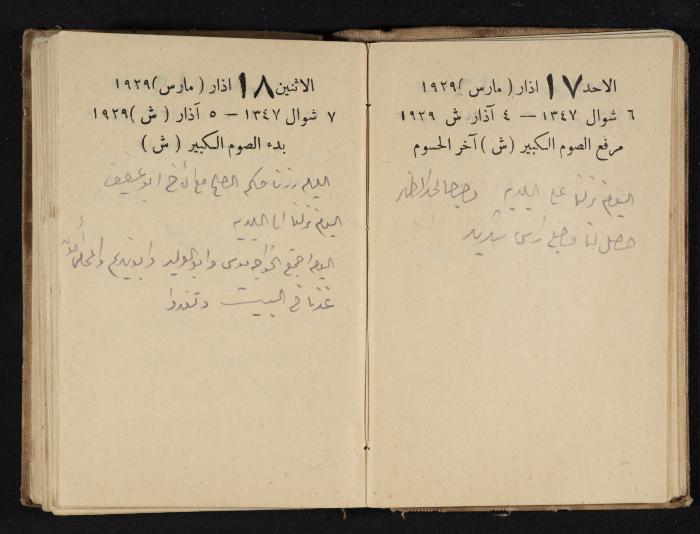 الاحد ١٧ اذار ( مارس ) ١٩٢٩
٦ شوال ١٣٤٧ — ٤ آذار ش ١٩٢٩
مرفع الصوم الكبير ( ش ) آخر الحسوم
اليوم نزلنا على البلديه
حصل لنا وجع راس شديد
الاثنين ١٨ اذار ( مارس ) ١٩٢٩
٧ شوال ١٣٤٧ — ٥ آذار ( ش ) ١٩٢٩
بدء الصوم الكبير ( ش )
اليوم زرنا حاكم الصلح مع الأخ ابو عفيف
اليوم نزلنا الى البلديه
اليوم اجتمع الخواجه موسى وابو الوليد وابو نديم
عندنا في البيت وتغدوا